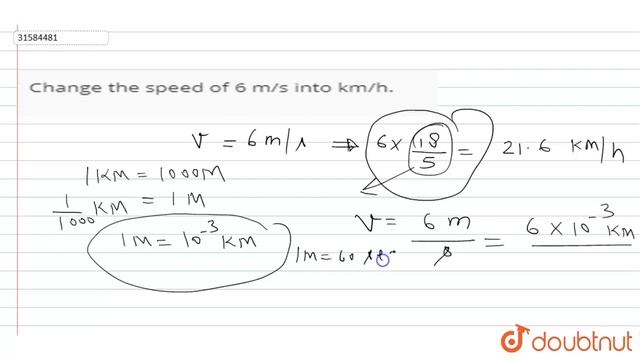 31584481
Change the speed of 6 m/s into km/h.
v = 6 m/s ⇒ 6 × 18/5 = 21.6 KM/h
1KM = 1000M
1/1000 KM = 1M
1M = 10⁻³ KM
v = 6 m/s = 6 × 10⁻³ KM
1M = 60
doubtnut